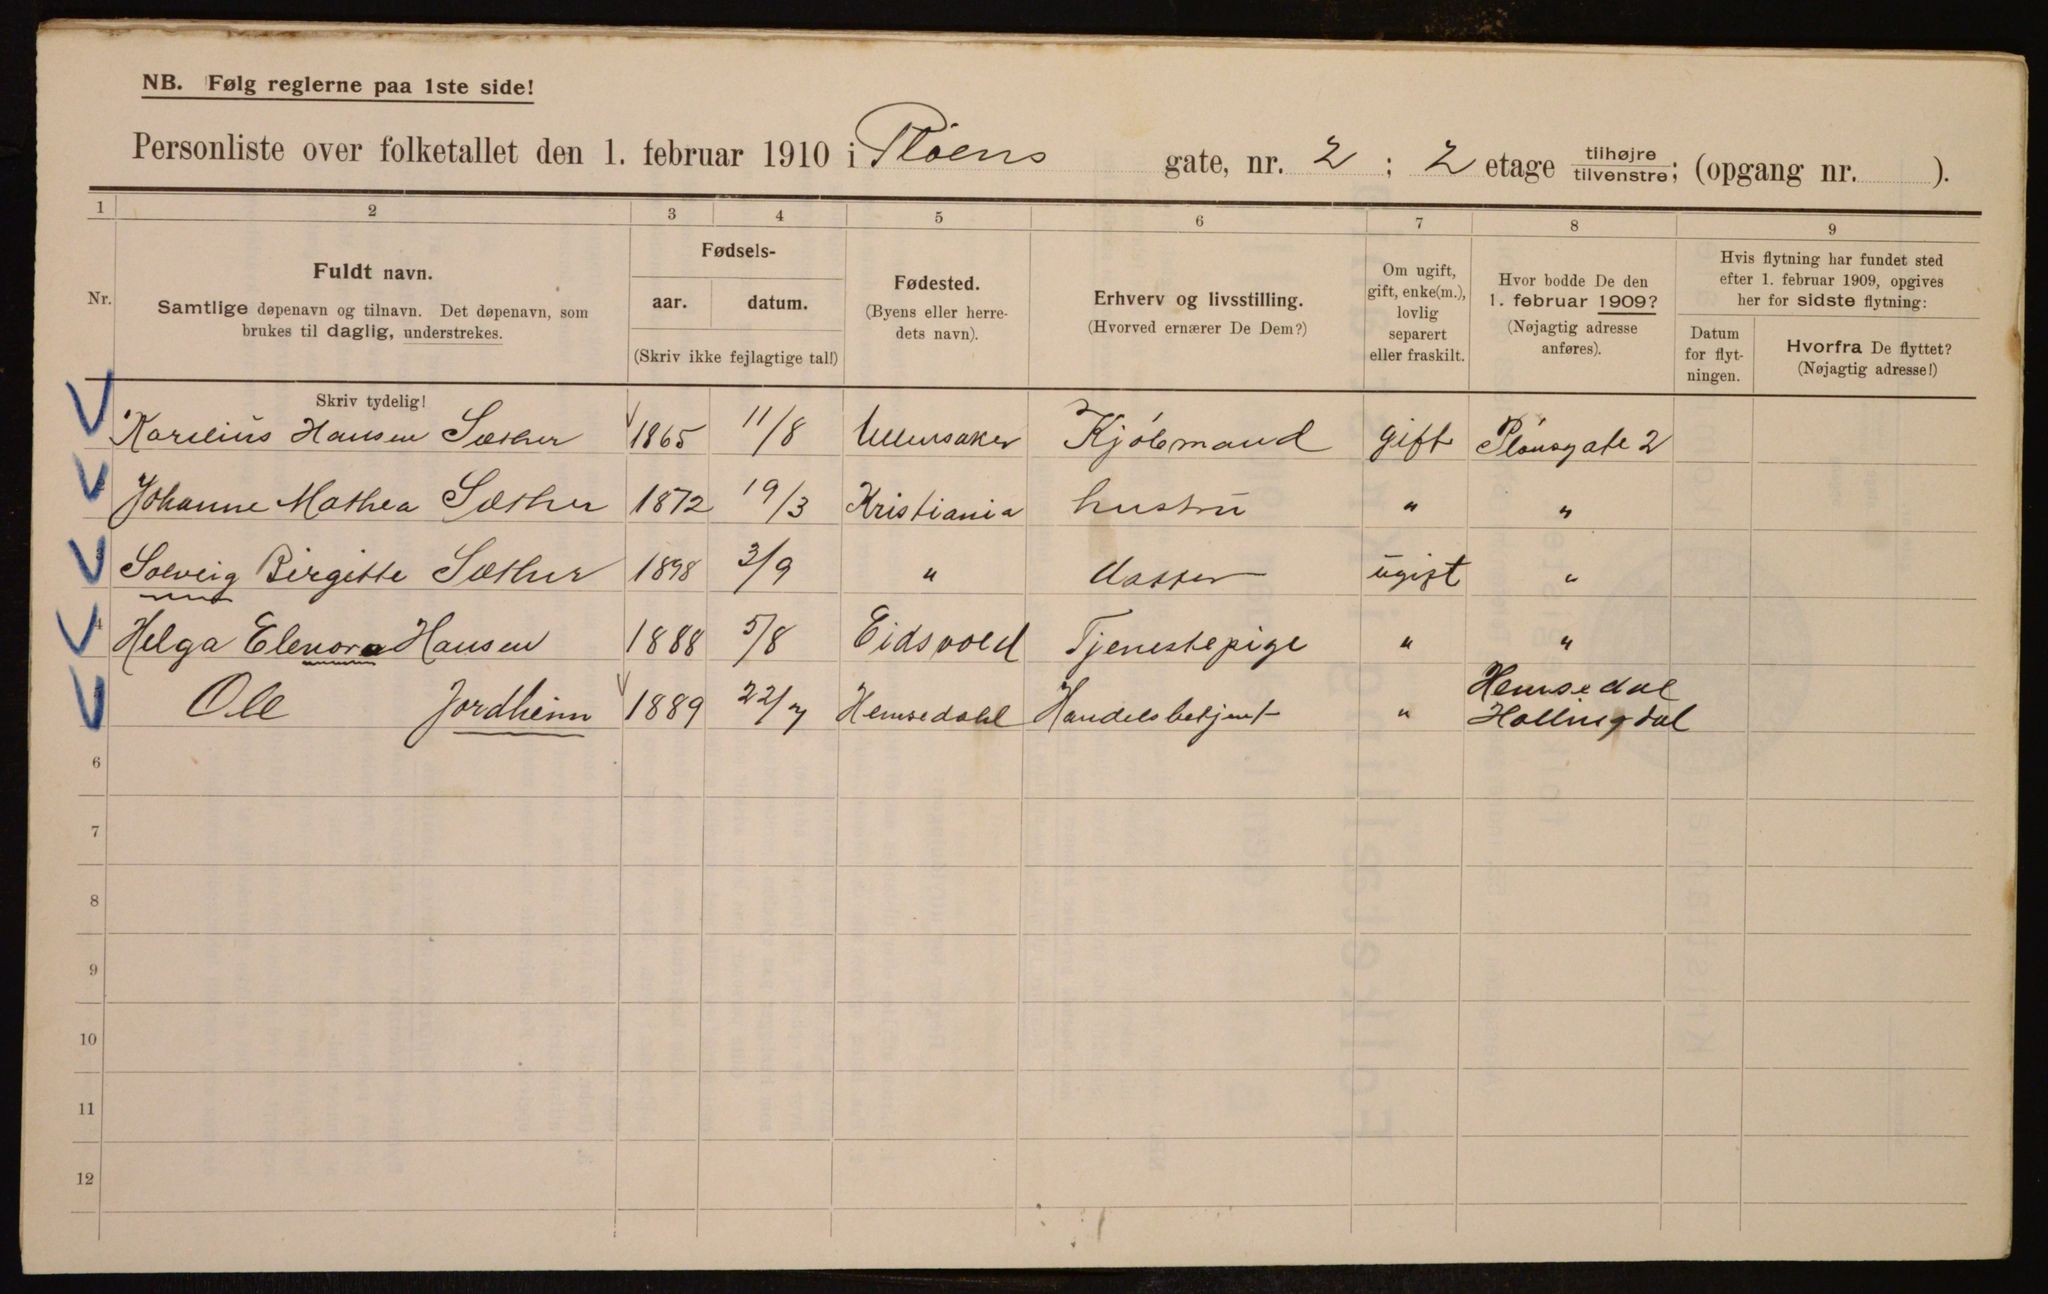 NB. Følg reglerne paa 1ste side!
Personliste over folketallet den 1. februar 1910 i Pløens gate, nr. 2 ; 2 etage tilhøjre tilvenstre; (opgang nr. ).
1 2 3 4 5 6 7 8 9
Nr.
Fuldt navn.
Samtlige døpenavn og tilnavn. Det døpenavn, som
brukes til daglig, understrekes.
Skriv tydelig!
Fødsels-
aar. datum.
(Skriv ikke fejlagtige tal!)
Fødested.
(Byens eller herre-
dets navn).
Erhverv og livsstilling.
(Hvorved ernærer De Dem?)
Om ugift,
gift, enke(m.),
lovlig
separert
eller fraskilt.
Hvor bodde De den
1. februar 1909?
(Nøjagtig adresse
anføres).
Hvis flytning har fundet sted
efter 1. februar 1909, opgives
her for sidste flytning:
Datum
for flyt-
ningen.
Hvorfra De flyttet?
(Nøjagtig adresse!)
Karelius Hansen Sæther 1865 11/8 Ullensaker Kjöbmand gift Plönsgate 2
Johanne Mathea Sæther 1872 19/3 Kristiania hustru " "
3 Solveig Birgitte Sæther 1898 3/9 " datter ugift "
4 Helga Elenora Hansen 1888 5/8 Eidsvold Tjenestepige " "
Ole Jordheim 1889 22/7 Hemsedahl Handelsbetjent " Hemsedal
Hallingdal
6
7
8
9
10
11
12